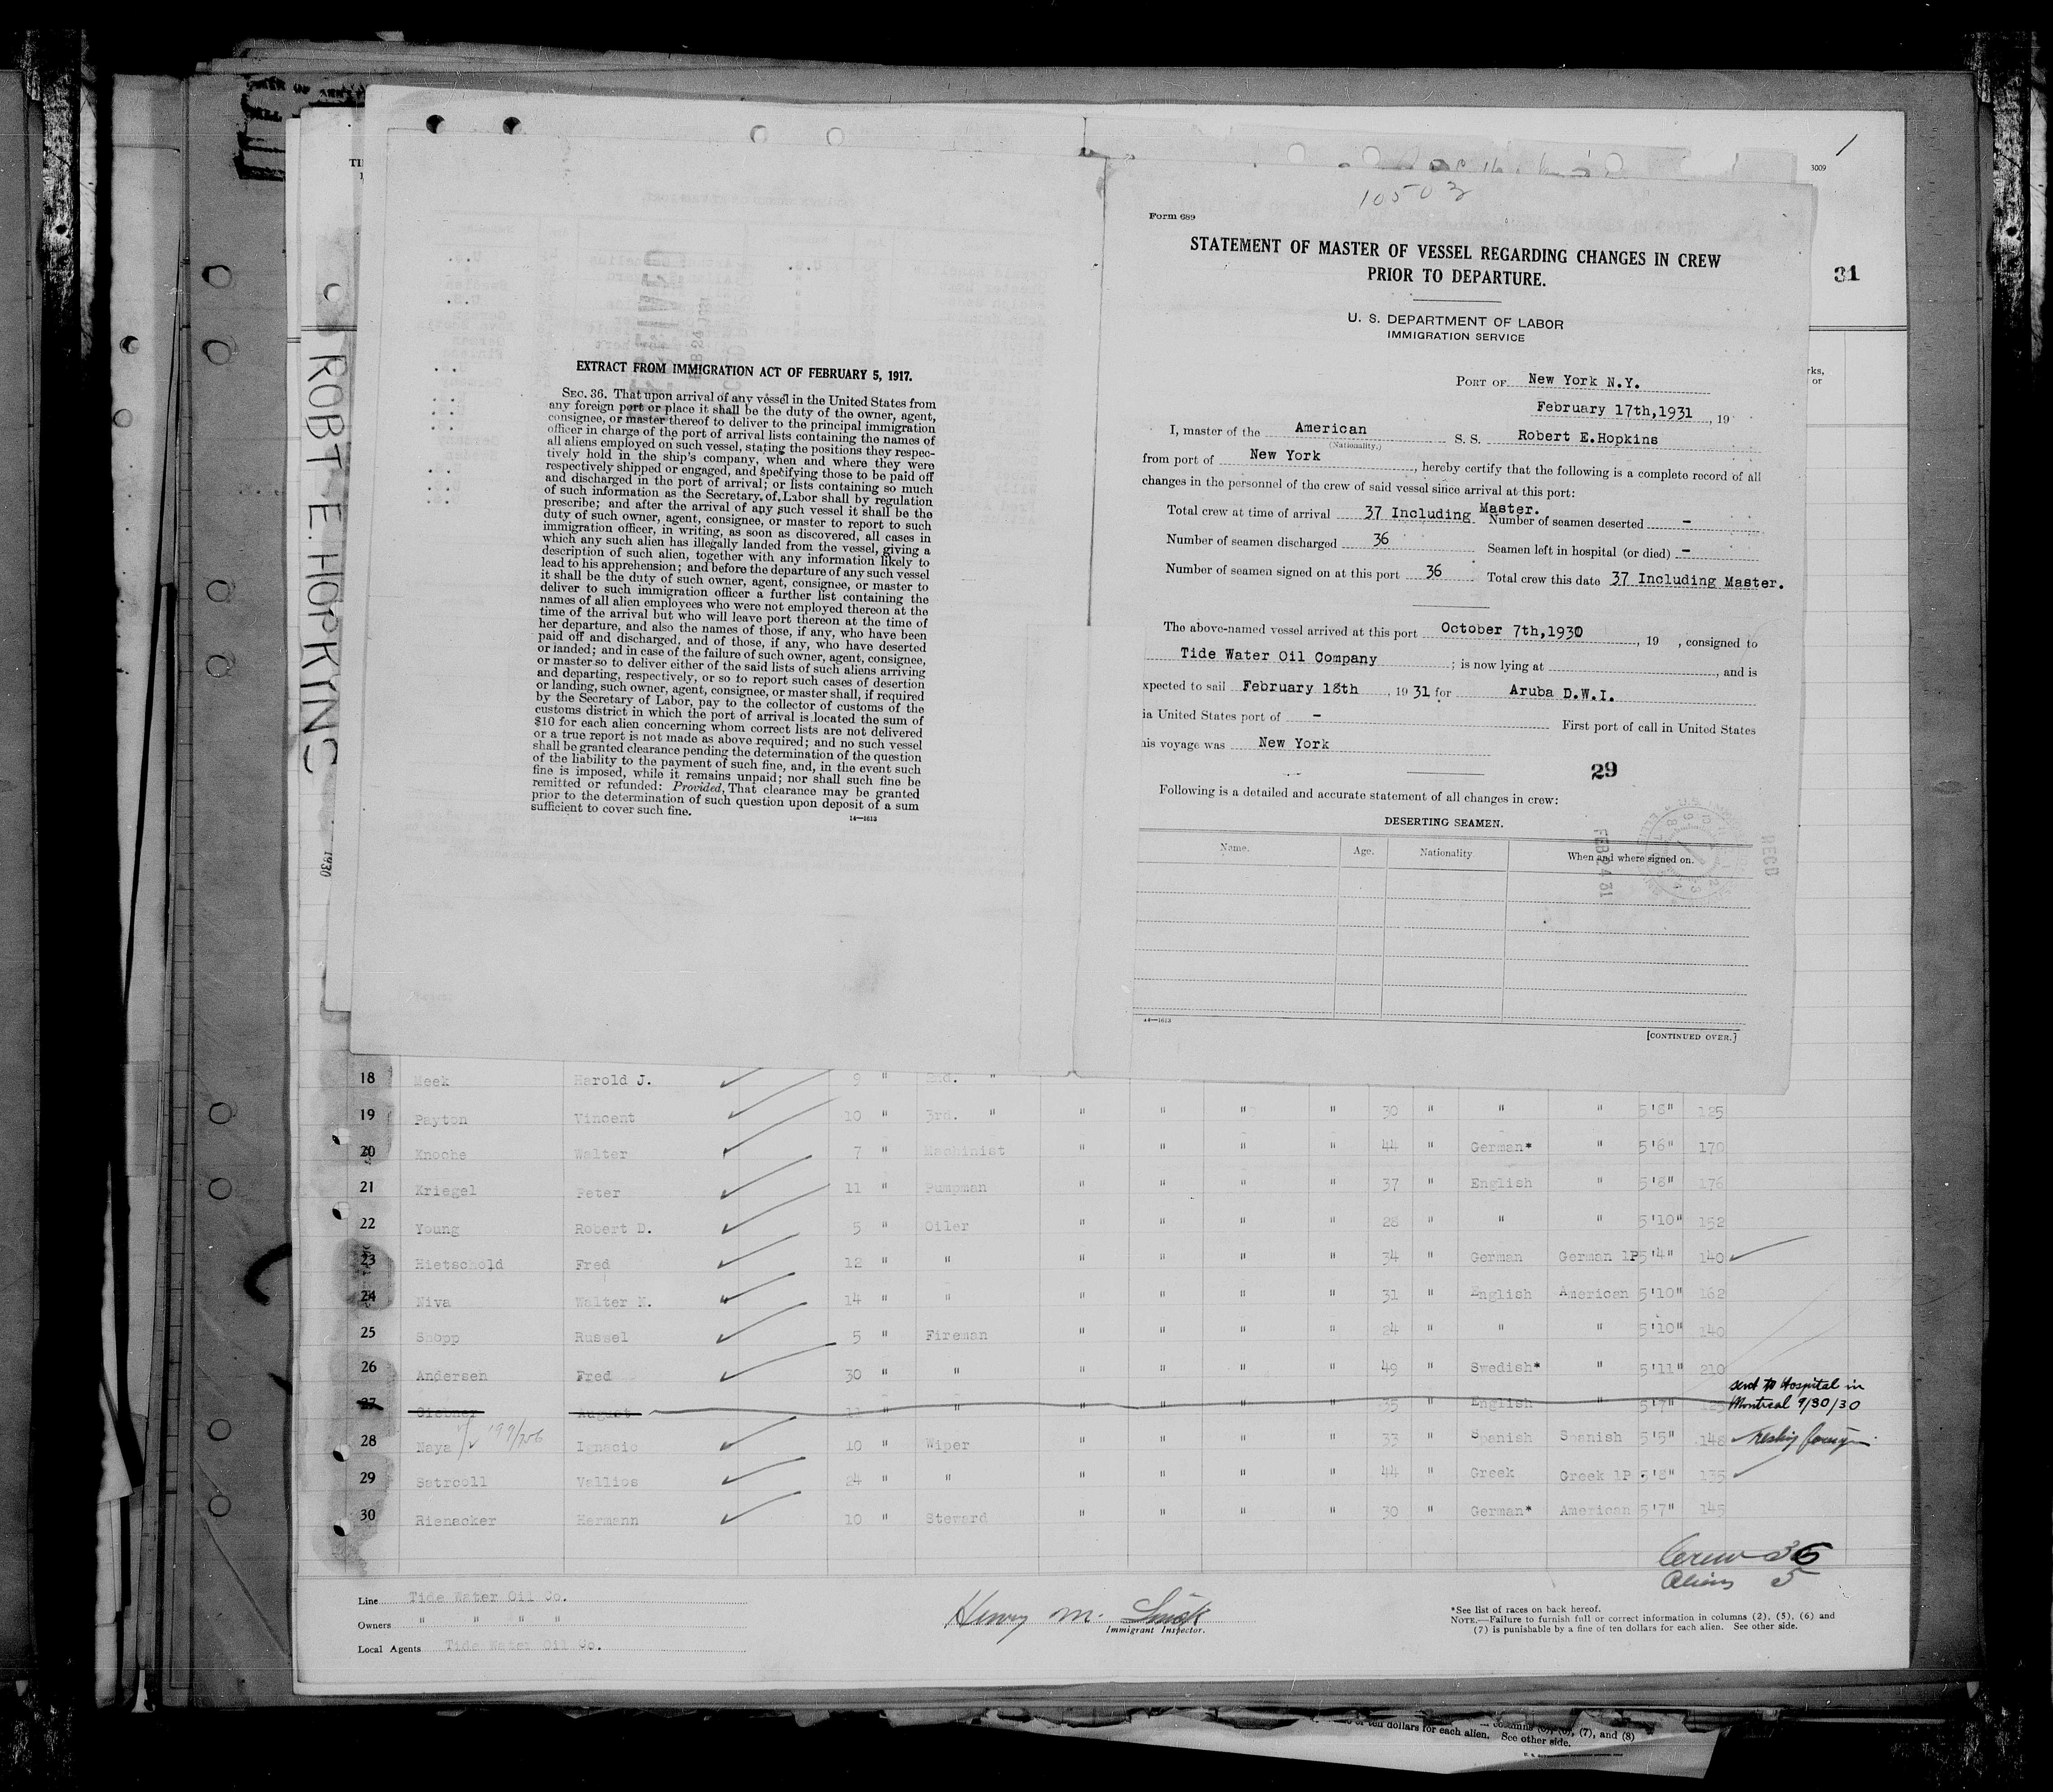 10503
Form 689
STATEMENT OF MASTER OF VESSEL REGARDING CHANGES IN CREW
PRIOR TO DEPARTURE.
U. S. DEPARTMENT OF LABOR
IMMIGRATION SERVICE
PORT OF New York N.Y.
February 17th,1931 , 19
I, master of the American S. S. Robert E.Hopkins
(Nationality.)
from port of New York , hereby certify that the following is a complete record of all
changes in the personnel of the crew of said vessel since arrival at this port:
Total crew at time of arrival 37 Including Master. Number of seamen deserted -
Number of seamen discharged 36 Seamen left in hospital (or died) -
Number of seamen signed on at this port 36 Total crew this date 37 Including Master.
The above-named vessel arrived at this port October 7th,1930 , 19 , consigned to
Tide Water Oil Company ; is now lying at , and is
xpected to sail February 18th , 19 31 for Aruba D.W.I.
ia United States port of - First port of call in United States
his voyage was New York
29
Following is a detailed and accurate statement of all changes in crew:
DESERTING SEAMEN.
Name. Age. Nationality When and where signed on.
FEB 24 31
RECD
14—1613
[CONTINUED OVER.]
1
3009
31
rks,
or
ROBT E. HOPKINS
1930
EXTRACT FROM IMMIGRATION ACT OF FEBRUARY 5, 1917.
SEC. 36. That upon arrival of any vessel in the United States from
any foreign port or place it shall be the duty of the owner, agent,
consignee, or master thereof to deliver to the principal immigration
officer in charge of the port of arrival lists containing the names of
all aliens employed on such vessel, stating the positions they respec-
tively hold in the ship's company, when and where they were
respectively shipped or engaged, and specifying those to be paid off
and discharged in the port of arrival; or lists containing so much
of such information as the Secretary of Labor shall by regulation
prescribe; and after the arrival of any such vessel it shall be the
duty of such owner, agent, consignee, or master to report to such
immigration officer, in writing, as soon as discovered, all cases in
which any such alien has illegally landed from the vessel, giving a
description of such alien, together with any information likely to
lead to his apprehension; and before the departure of any such vessel
it shall be the duty of such owner, agent, consignee, or master to
deliver to such immigration officer a further list containing the
names of all alien employees who were not employed thereon at the
time of the arrival but who will leave port thereon at the time of
her departure, and also the names of those, if any, who have been
paid off and discharged, and of those, if any, who have deserted
or landed; and in case of the failure of such owner, agent, consignee,
or master so to deliver either of the said lists of such aliens arriving
and departing, respectively, or so to report such cases of desertion
or landing, such owner, agent, consignee, or master shall, if required
by the Secretary of Labor, pay to the collector of customs of the
customs district in which the port of arrival is located the sum of
$10 for each alien concerning whom correct lists are not delivered
or a true report is not made as above required; and no such vessel
shall be granted clearance pending the determination of the question
of the liability to the payment of such fine, and, in the event such
fine is imposed, while it remains unpaid; nor shall such fine be
remitted or refunded: Provided, That clearance may be granted
prior to the determination of such question upon deposit of a sum
sufficient to cover such fine.
14—1613
18 Meek Harold J. 9 " 2nd. "
19 Payton Vincent 10 " 3rd. " " " " " 30 " " " 5'6" 125
20 Knoche Walter 7 " Machinist " " " " 44 " German* " 5'6" 170
21 Kriegel Peter 11 " Pumpman " " " " 37 " English " 5'8" 176
22 Young Robert D. 5 " Oiler " " " " 28 " " " 5'10" 152
23 Hietschold Fred 12 " " " " " " 34 " German German 1P 5'4" 140
24 Niva Walter N. 14 " " " " " " 31 " English American 5'10" 162
25 Shopp Russel 5 " Fireman " " " " 24 " " " 5'10" 140
26 Andersen Fred 30 " " " " " " 49 " Swedish* " 5'11" 210
27 August 11 " " " " " " 35 " English " 5'7" sent to Hospital in
Montreal 9/30/30
28 Naya Ignacio 10 " Wiper " " " " 33 " Spanish Spanish 5'5" 148
29 Satrcoll Vallios 24 " " " " " " 44 " Greek Greek 1P 5'8" 135
30 Rienacker Hermann 10 " Steward " " " " 30 " German* American 5'7" 145
Crew 36
Aliens 5
Line Tide Water Oil Co.
Owners " " " "
Local Agents Tide Water Oil Co.
Henry M.
Immigrant Inspector.
*See list of races on back hereof.
NOTE.—Failure to furnish full or correct information in columns (2), (5), (6) and
(7) is punishable by a fine of ten dollars for each alien. See other side.
of ten dollars for each alien. See other side.
columns (5), (6), (7), and (8)